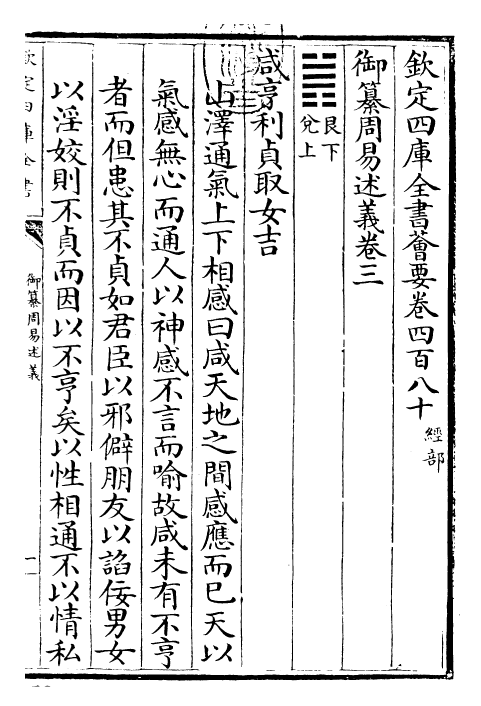 欽定四庫全書薈要卷四百八十 經部
御纂周易述義卷三
䷞ 艮下 兌上
咸亨利貞取女吉
山澤通氣上下相感曰咸天地之間感應而已天以
氣感無心而通人以神感不言而喻故咸未有不亨
者而但患其不貞如君臣以邪僻朋友以諂佞男女
以淫姣則不貞而因以不亨矣以性相通不以情私
欽定四庫全書
御纂周易述義
一